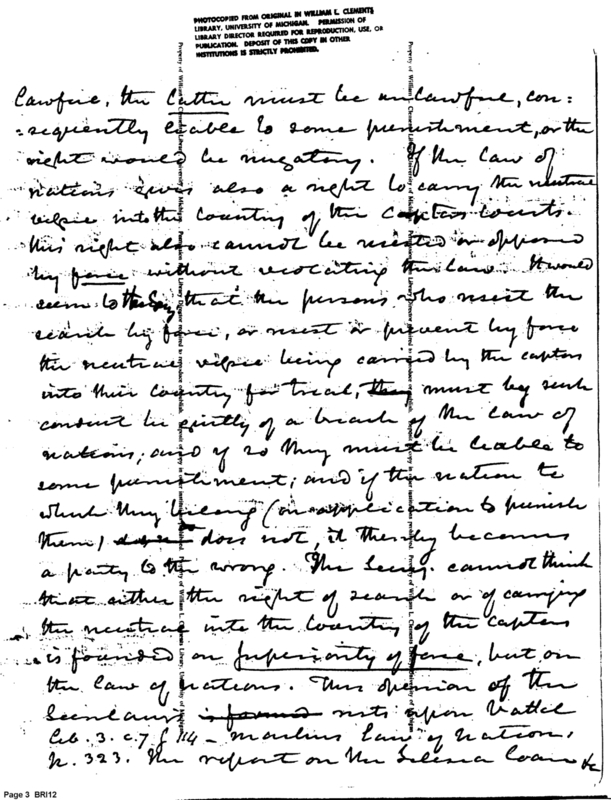 PHOTOCOPIED FROM ORIGINAL IN WILLIAM L. CLEMENTS
LIBRARY, UNIVERSITY OF MICHIGAN. PERMISSION OF
LIBRARY DIRECTOR REQUIRED FOR REPRODUCTION, USE, OR
PUBLICATION. DEPOSIT OF THIS COPY IN OTHER
INSTITUTIONS IS STRICTLY PROHIBITED.
lawful, the latter must be unlawful, con:
:sequently liable to some punishment, or the
right would be nugatory. If the law of
nations gives also a right to carry the neutral
vessel into the Country of the Captors Courts.
this right also cannot be resisted or opposed
by force without violating the law. It would
seem to the Secy that the persons who resist the
search by force, or resist or prevent by force
the neutral vessel being carried by the captors
into their Country for trial, they must by such
conduct be guilty of a breach of the law of
nations; and if so they must be liable to
some punishment; and if the nation to
which they belong (on application to punish
them) does not, it thereby becomes
a party to the wrong. The Secy. cannot think
that either the right of search or of carrying
the neutral into the Country of the captors
is founded on superiority of force, but on
the law of nations. This opinion of the
Secretary is formed rests upon Vattel
Lib. 3. c. 7 § 114 - Martens law of Nations,
p. 323. The report on the Silesia loan &c
Page 3 BRI12